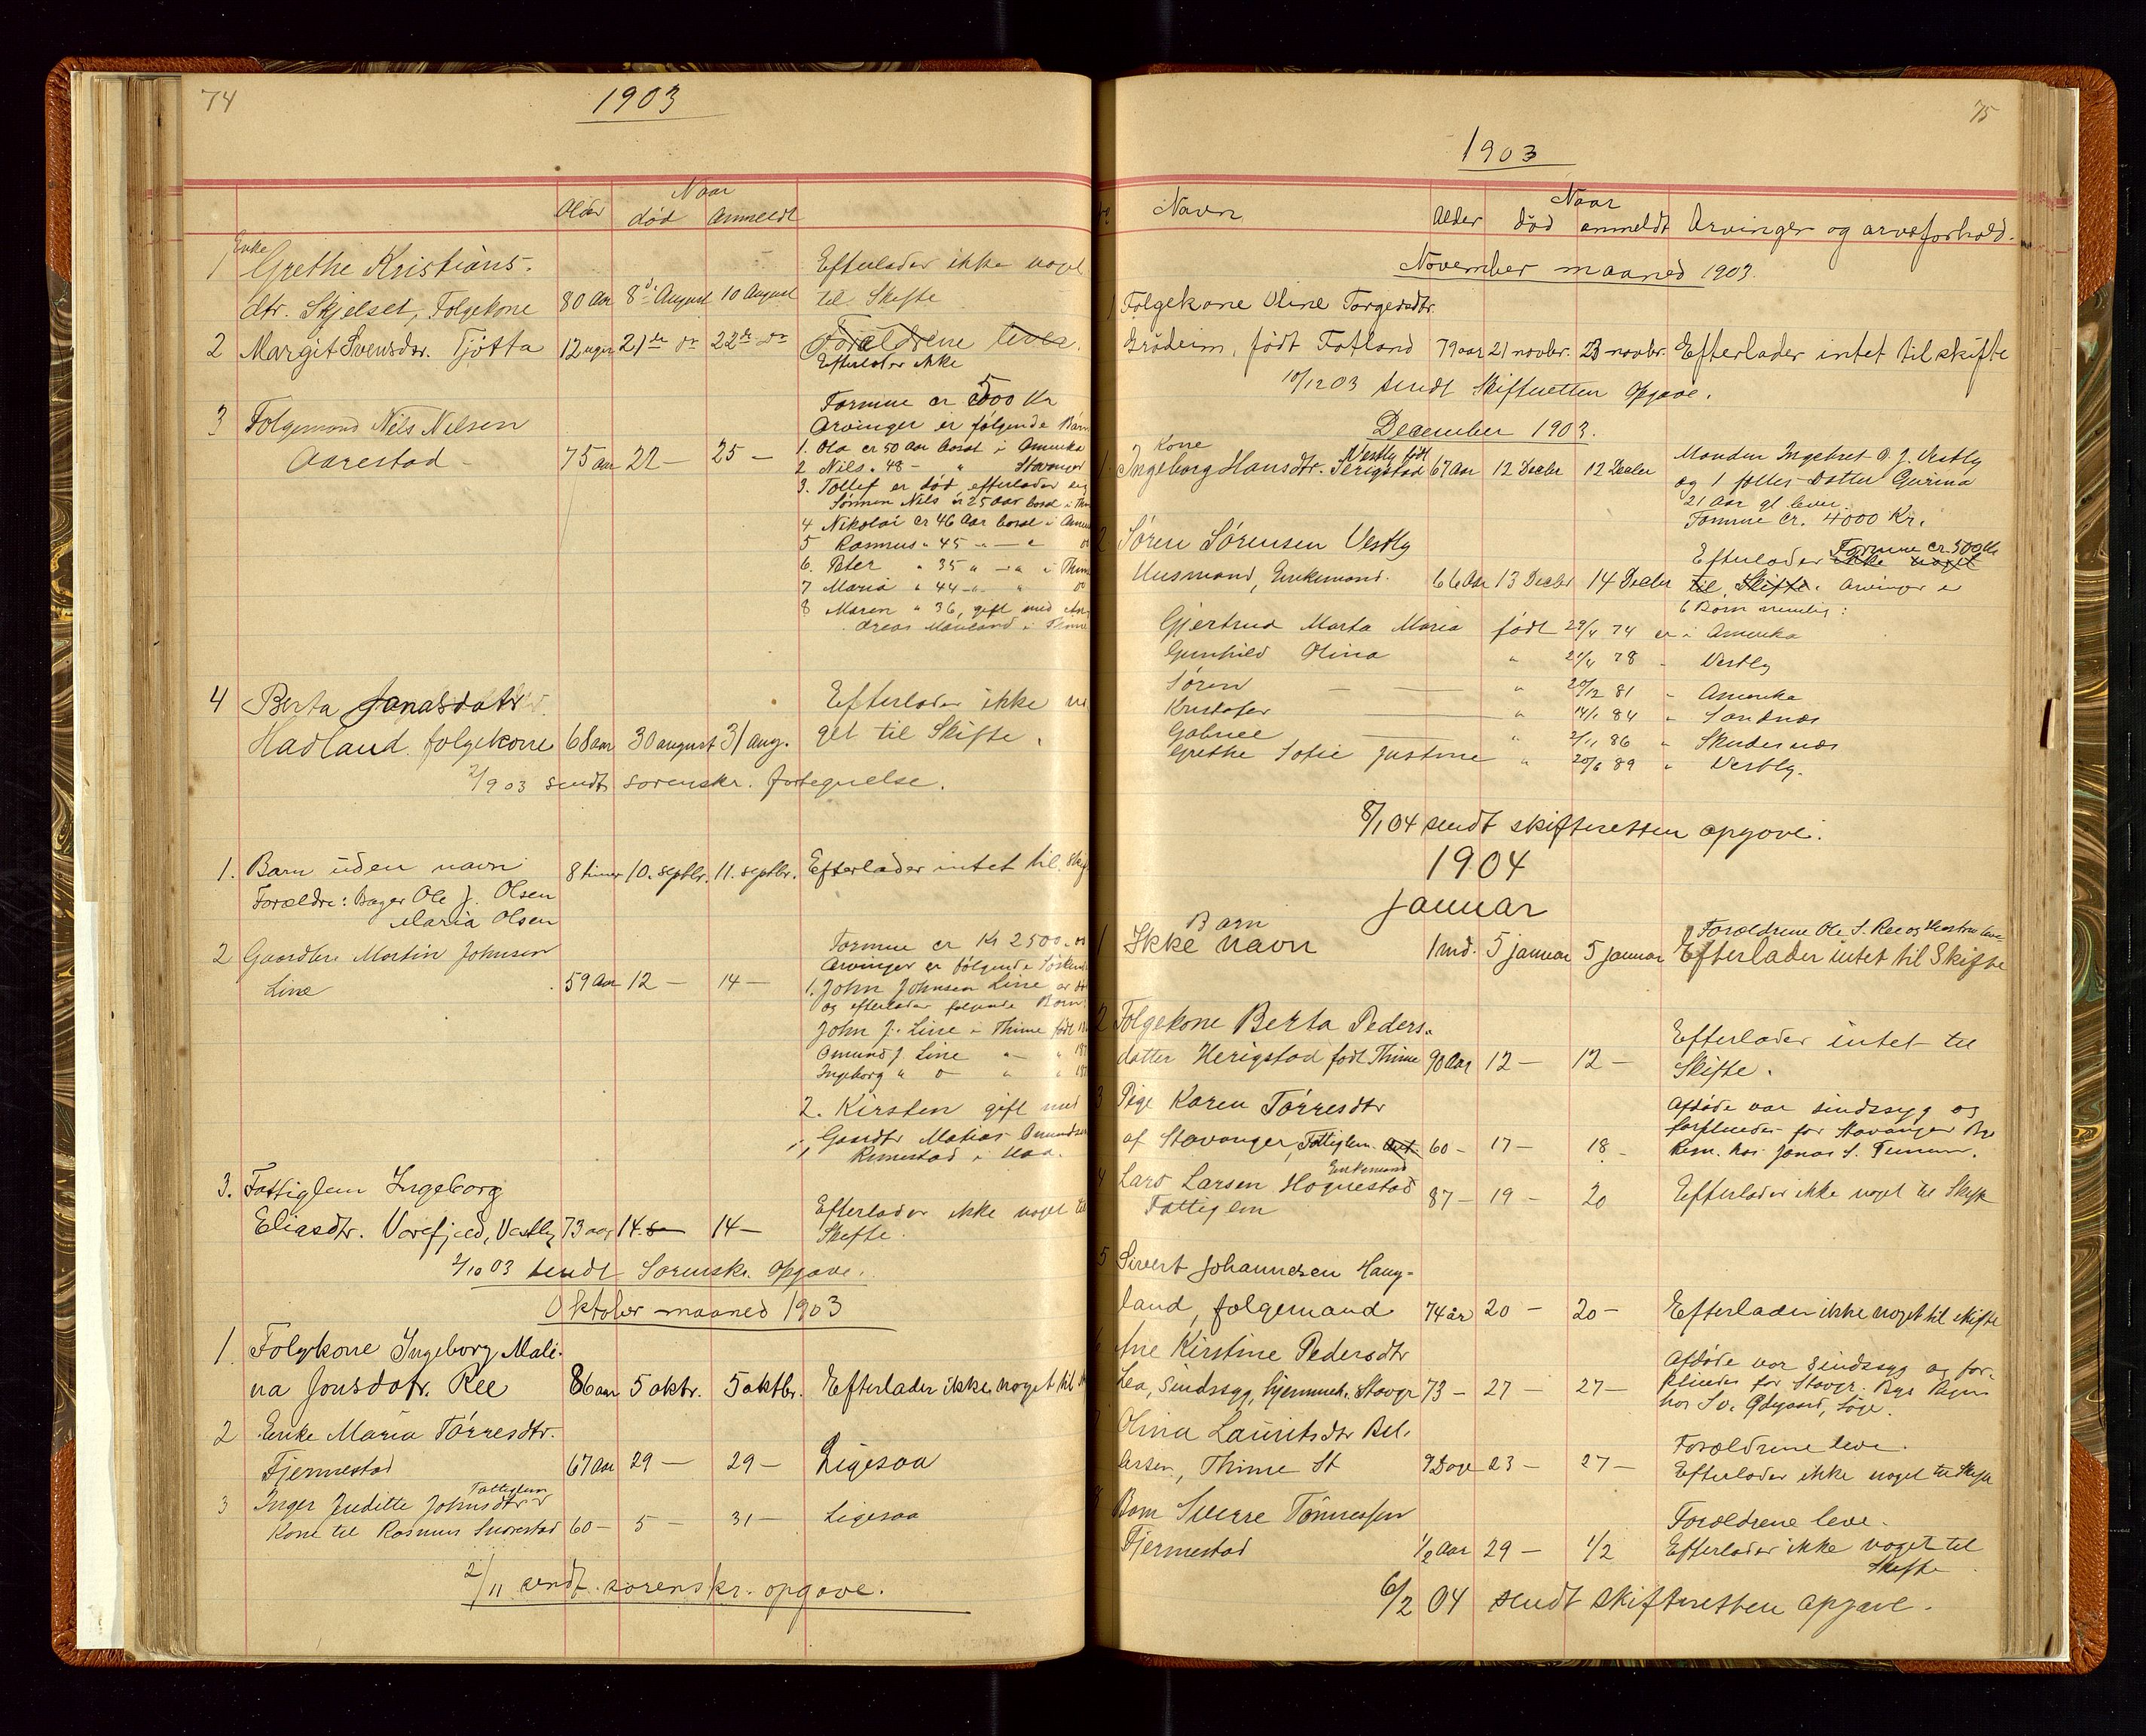 74
1903
Alder
Naar
død
Anmeldt
1 Enke
Grethe Kristians-
dtr. Skjelset, Folgekone 80 Aar 8de August 10 August
Efterlader ikke noget
til Skifte
2 Margit Svensdtr. Tjøtta 12 uger 21de do 22de do
Forældrene lever.
Efterlader ikke
3 Folgemand Nils Nilsen
Aarestad 75 Aar 22 — 25 —
Formue er 5000 Kr
Arvinger er følgende Børn
1. Ola er 50 Aar bosat i Amerika
2 Nils " 48 — " Stavanger
3. Tollef er død, efterlader en
Sønnen Nils er 25 Aar bosat i
4 Nikolai er 46 Aar bosat i
5 Rasmus " 45 " — "
6. Peter " 35 " — " i
7 Maria " 44 — " "
8 Maren " 36, gift med An-
dreas Mauland i Thime
4 Berta Jonasdatr
Hadland folgekone 68 aar 30 august 31 aug.
Efterlader ikke no
get til Skifte.
2/9 03 sendt sorenskr. fortegnelse.
1. Barn uden navn 8 timer 10. septbr. 11. septbr. Efterlader intet til
Forældre: Bager Ole J. Olsen
Maria Olsen
2 Gaardbr. Martin Johnsen
Line 59 Aar 12 — 14 —
Formue er Kr 2500
Arvinger er følgende
1. John Johnsen Line er
og efterlader følgende Børn:
John J. Line i Thime født
Omund J. Line " — "
Ingeborg " o " "
2. Kirsten gift med
Gaardbr Matias Omundsen
Rimestad i Haa.
3. Fattiglem Ingeborg
Eliasdtr. Varefjeld, Vestly 73 aar 14. 14 —
Efterlader ikke noget til
Skifte.
2/10 03 sendt Sorenskr. Opgave.
Oktober maaned 1903
1. Folgekone Ingeborg Mali-
na Jonsdatr. Ree 86 aar 5 oktr. 5 oktbr. Efterlader ikke noget til
2 Enke Maria Tørresdtr.
Fjermestad 67 Aar 29 — 29 — Ligesaa
3 Inger Juditte Johnsdtr Fattiglem
Kone til Rasmus Snorestad 60 — 5 — 31 — Ligesaa
2/11 sendt sorenskr. opgave.
75
1903
Navn
Alder
Naar
død anmeldt
Arvinger og arveforhold.
November maaned 1903.
1 Folgekone Oline Torgersdtr.
Grødeim, født Fotland 79 aar 21 novbr. 23 novbr. Efterlader intet til skifte
10/12 03 sendt Skifteretten Opgave.
December 1903.
Kone
1. Ingeborg Hansdtr. Vestly født
Serigstad 67 Aar 12 Decbr 12 Decbr
Manden Ingebret O. J. Vestly
og 1 fælles Datter Gurina
21 Aar gl lever.
Formue Cr. 4000 Kr.
2 Søren Sørensen Vestly
Husmand, Enkemand. 66 Aar 13 Decbr 14 Decbr
Efterlader Formue cr. 500 Kr
ikke noget
til Skifte. Arvinger er
6 Børn nemlig:
Gjertrud Marta Maria født 29/4 74 er i Amerika
Gunhild Olina " 21/4 78 " Vestly
Søren " 20/12 81 " Amerika
Kristofer " 14/1 84 " Sandnæs
Gabriel " 2/11 86 " Skudesnæs
Grethe Sofie Justine " 20/6 89 " Vestly.
8/1 04 sendt skifteretten opgave.
1904
Januar
Barn
1 Ikke navn 1 md. 5 januar 5 januar
Forældrene Ole S. Ree og Hustru lever
Efterlader intet til Skifte
2 Folgekone Berta Peders-
datter Herigstad født Thime 90 Aar 12 — 12 —
Efterlader intet til
Skifte.
3 Pige Karen Tørresdtr
af Stavanger, Fattiglem 60 — 17 — 18 —
Afdøde var sindssyg og
forpleiedes for Stavanger Bys
Regn. hos Jonas S.
4 Lars Larsen Hognestad Enkemand
Fattiglem 87 — 19 — 20 Efterlader ikke noget til Skifte
5 Sivert Johannesen Haug-
land, folgemand 74 år 20 — 20 — Efterlader ikke noget til skifte
6 Ane Kirstine Pedersdtr
Lea, Sindssyg, hjemmeh. Stavgr 73 — 27 — 27 —
Afdøde var sindssyg og for-
pleiedes for Stavgr. Bys Regn
hos Sv. Ødegaard, Lye.
7 Olina Lauritsdtr Bel-
larsen, Thime St 9 Dage 23 — 27 —
Forældrene leve.
Efterlader ikke noget til Skifte
8 Barn Sverre Tønnessen
Fjermestad 1/2 Aar 29 — 1/2
Forældrene leve.
Efterlader ikke noget til
Skifte
6/2 04 sendt skifteretten opgave.